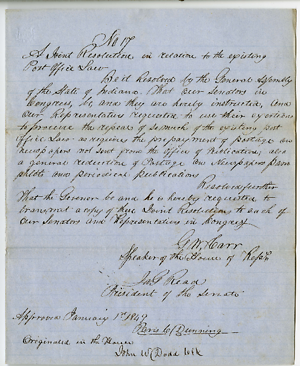 No 17
A Joint Resolution in relation to the existing
Post Office Law
Be it Resolved by the General Assembly
of the State of Indiana, That our Senators in
Congress, be, and they are hereby instructed, and
our Representatives requested to use their exertions
to procure the repeal of so much of the existing Post
Office Law as requires the prepayment of postage on
Newspapers not sent from the office of Publication, also
a general reduction of Postage on Newspapers pam
phlets and periodical publications
Resolved further
That the Governor be and he is hereby requested to
transmit a copy of this Joint Resolution to each of
our Senators and Representatives in Congress
G. W. Carr
Speaker of the House of Rep
Jas G Read
President of the Senate
Approved January 1st 1849
Paris C Dunning
Originated in the House
John W Dodd Clk